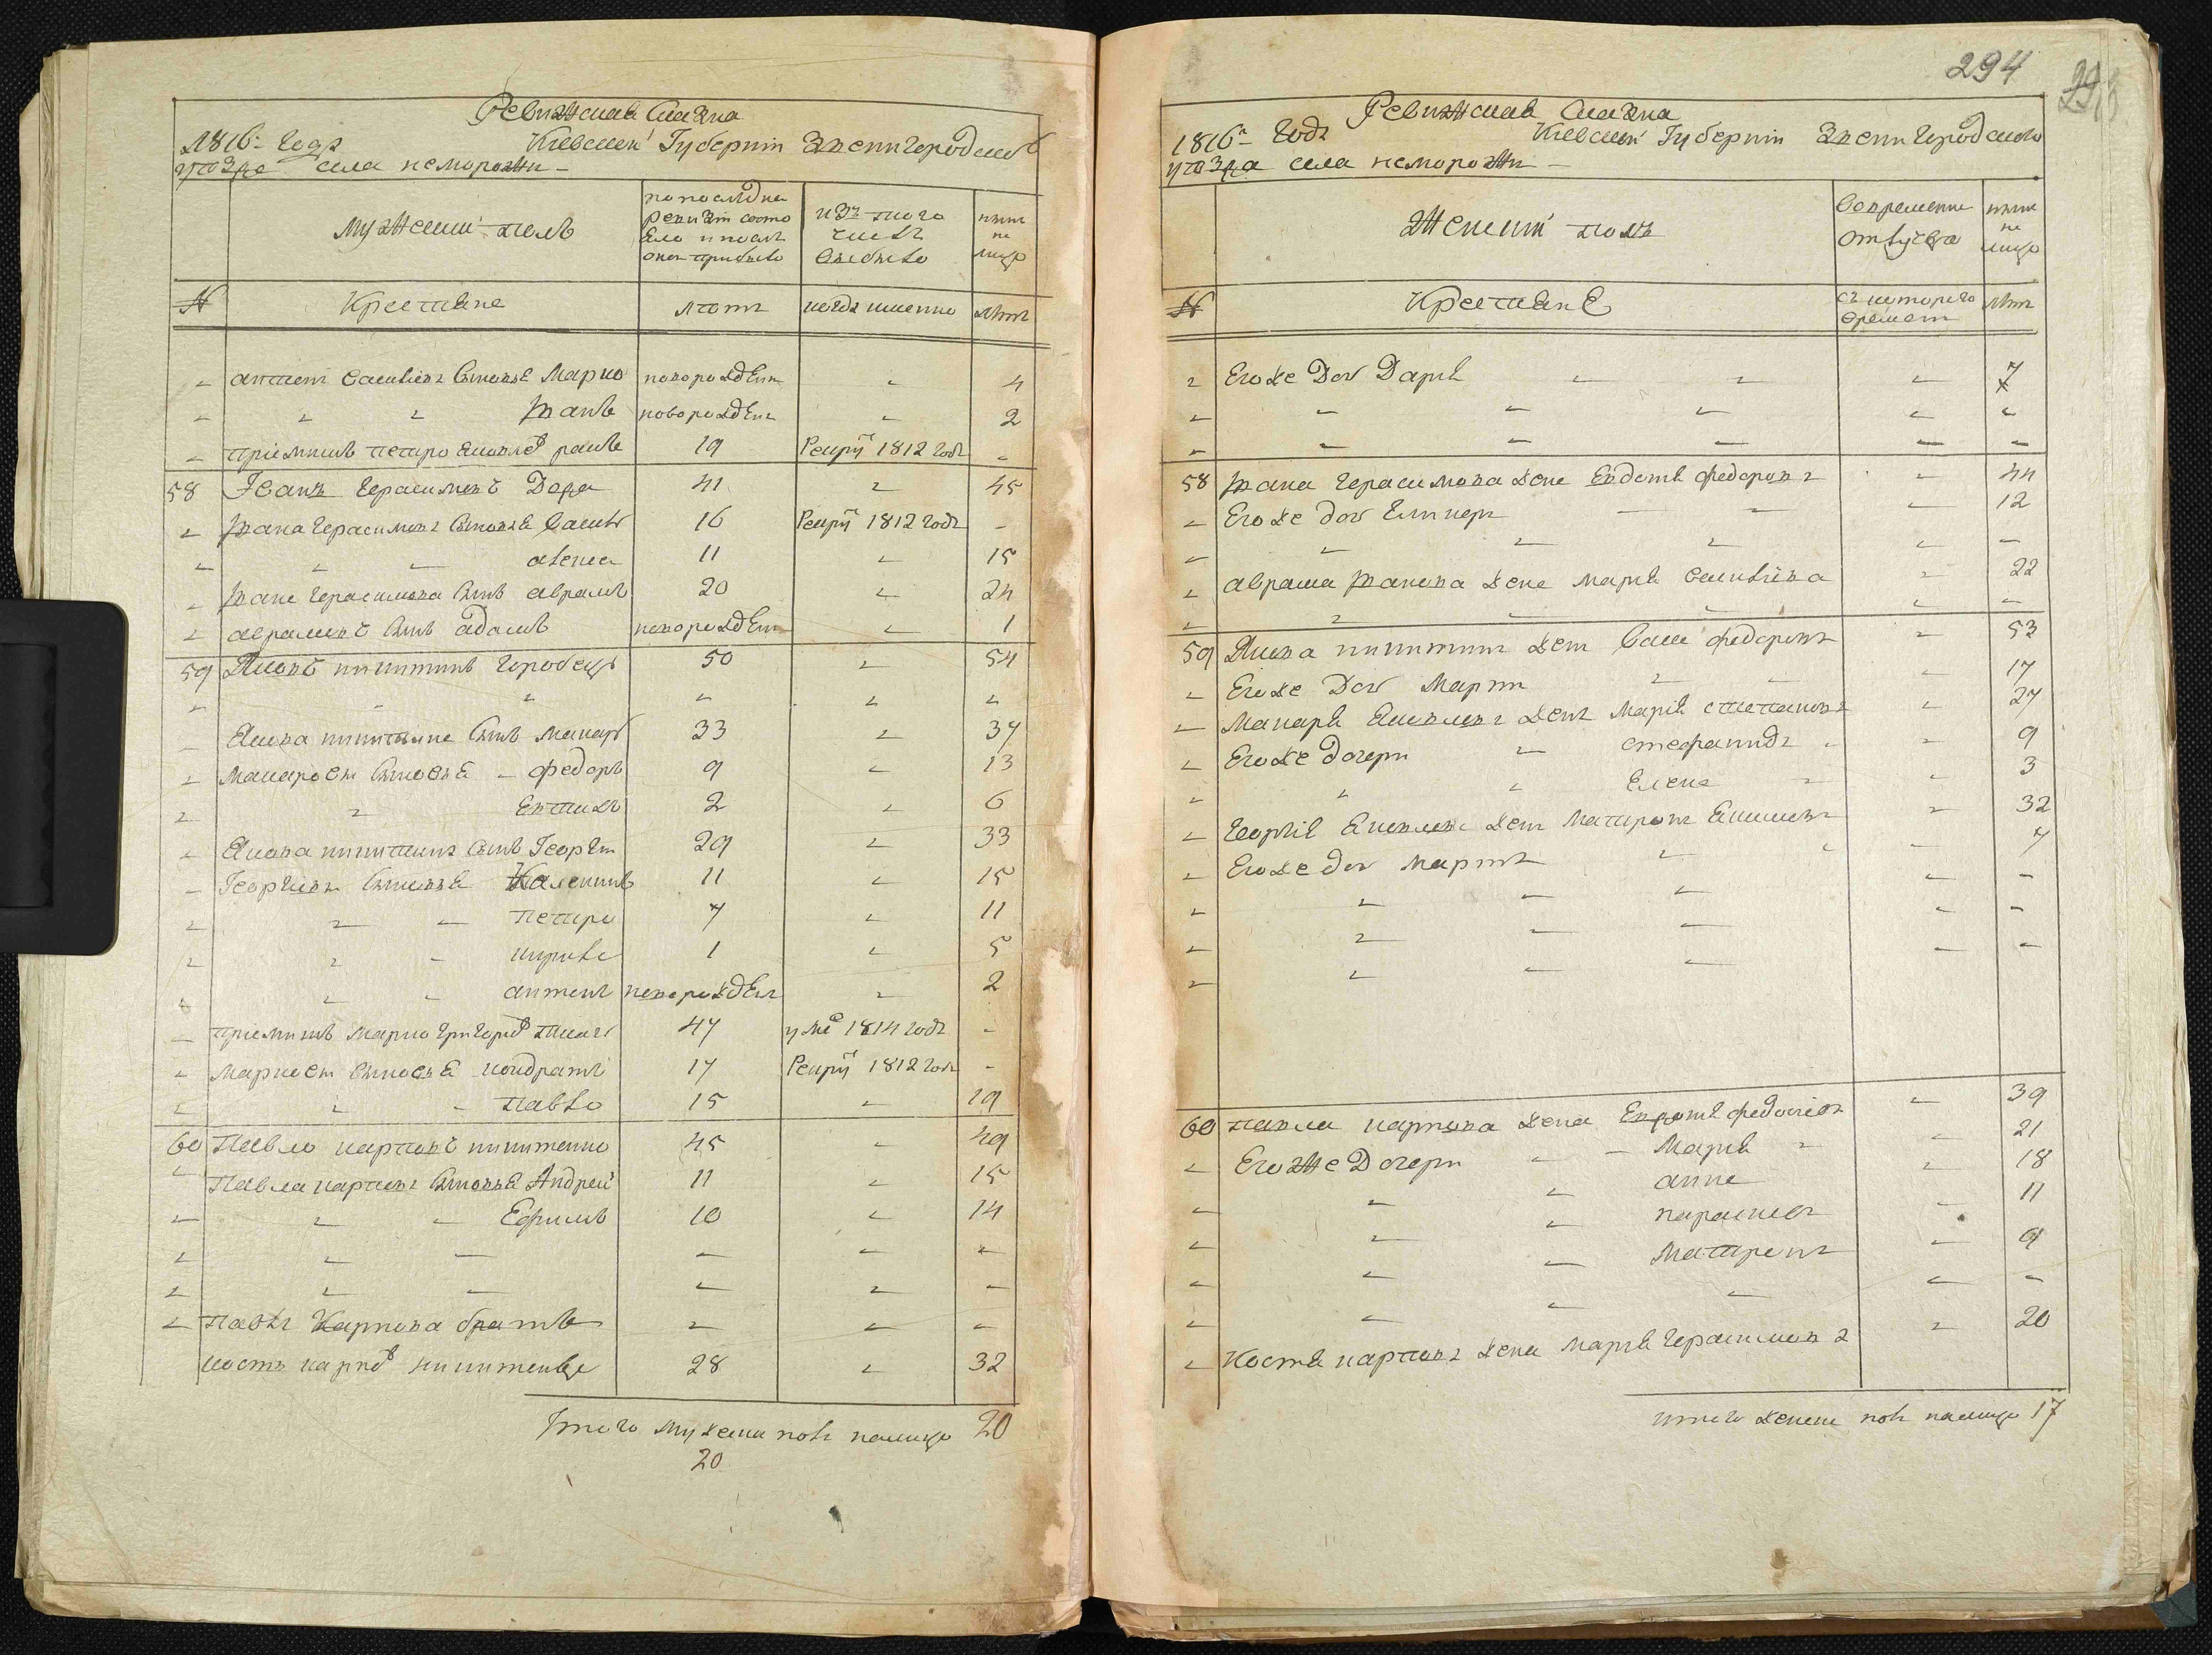 Ревижская Сказка
1816 года Киевской Губернии Звенигородского
уезда села неморожи
мужеский полъ
по последней ревизии состояло и после оной прибыло
изъ того числа выбыло
ныне на лицо
№ Крестьяне летъ когда именно летъ
" антона Савы сыновья Марко новорожденъ " 4
" " " Иванъ новорожденъ " 2
" пріемышъ петро яковлевъ 19 Рекрутъ 1812 года "
58 Іванъ Герасимовъ 41 " 45
" Ивана Герасимова сыновья Василь 16 Рекрутъ 1812 года -
" " " алексей 11 " 15
" Ивана Герасимова сынъ авраамъ 20 " 24
" авраамовъ сынъ адамъ новорожденъ " 1
59 Яковъ никитинъ горобецъ 50 " 54
" " " " " "
" Якова никитина сынъ макаръ 33 " 37
" макаровы сыновья - федоръ 9 " 13
" " 2 " 6
" Якова никитина сынъ Георгій 29 " 33
" Георгіевы сыновья Каленикъ 11 " 15
" " " петро 7 " 11
" " " кирило 1 " 5
" " " антонъ новорожденъ " 2
" пріемышъ марко григоріевъ ткачъ 47 умре 1814 года -
" марковы сыновья кондратъ 17 Рекрутъ 1812 года -
" " " павло 15 " 19
60 Павло карповъ никитенко 45 " 49
" Павла карпова сыновья Андрей 11 " 15
" " " Ефимъ 10 " 14
" " " " " "
" " " " " "
" павла Карпова братъ " " "
кость карповъ никитенко 28 " 32
Итого мужеска пола налицо 20
20
294
Ревижская Сказка
1816 года Киевской Губернии Звенигородского
уезда села неморожи
Женский полъ
во временной отлучке
ныне на лицо
№ Крестьяне съ которого времени летъ
" Его же Дочь Дарья " " " 7
" " " " " "
" " " " " "
58 Ивана Герасимова жена Евдокия федорова " 44
" Его же дочь " " 12
" " " " " "
" авраама Иванова жена мария " 22
" " " " " "
59 Якова никитина жена федорова " 53
" Его же Дочь Марта " " 17
" Макара Яковлева жена Мария степанова " 27
" Его же дочери " стефанида " 9
" " " Елена " " 3
" Георгія Яковлева жена Матрона " 32
" Его же дочь марта " " 7
" " " " " "
" " " " " "
" " " " " "
60 павла карпова жена " 39
" Его же Дочери " - Марья " " 21
" " " анна " 18
" " " параскева " 11
" " " Матрона " 9
" " " " " "
" Костя карпова жена марья Герасимова " 20
итого женска пола налицо 17